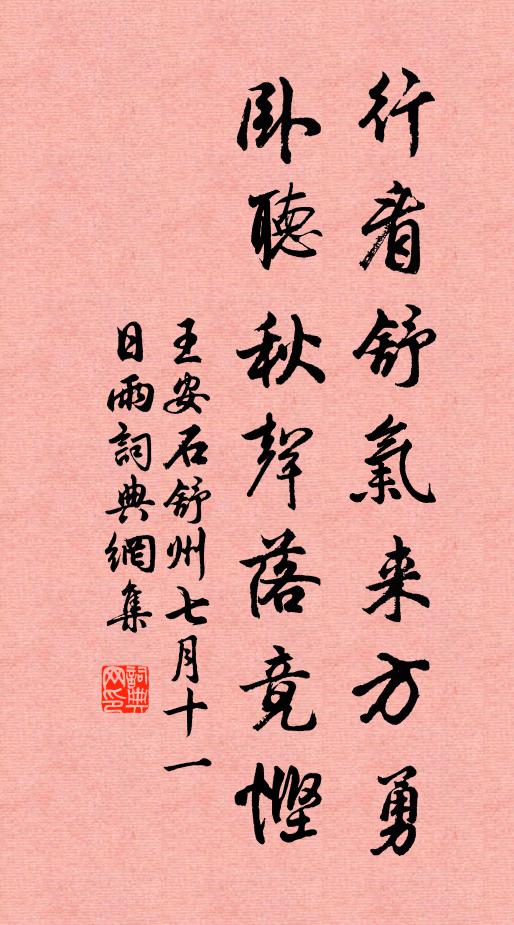 行看舒氣来方勇
卧聽秋聲落竟慳
王安石舒州七月十一
日雨詞典網集
詞典
网印